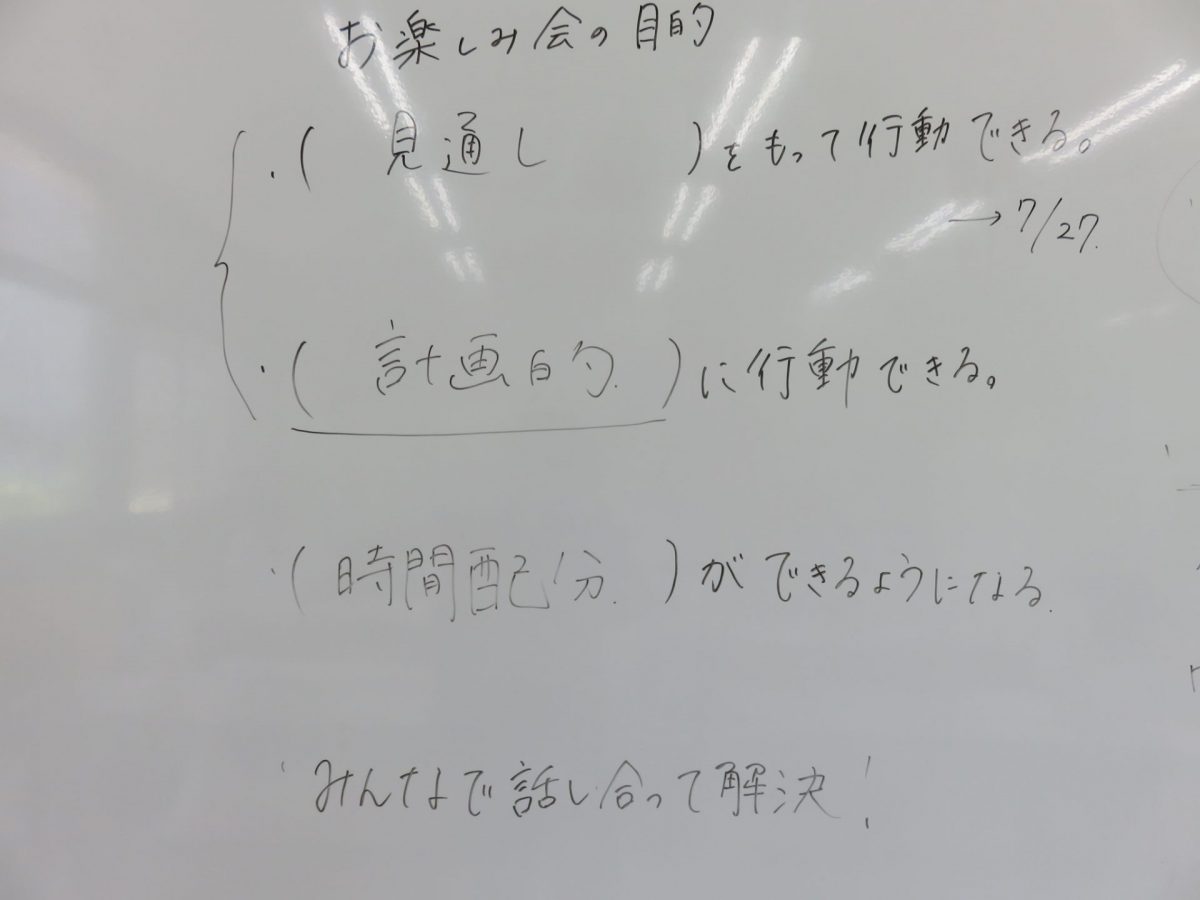 お楽しみ会の目的
・( 見通し )をもって行動できる。
→7/27.
・( 計画的. )に行動できる。
・( 時間配分. )ができるようになる.
・みんなで話し合って解決!